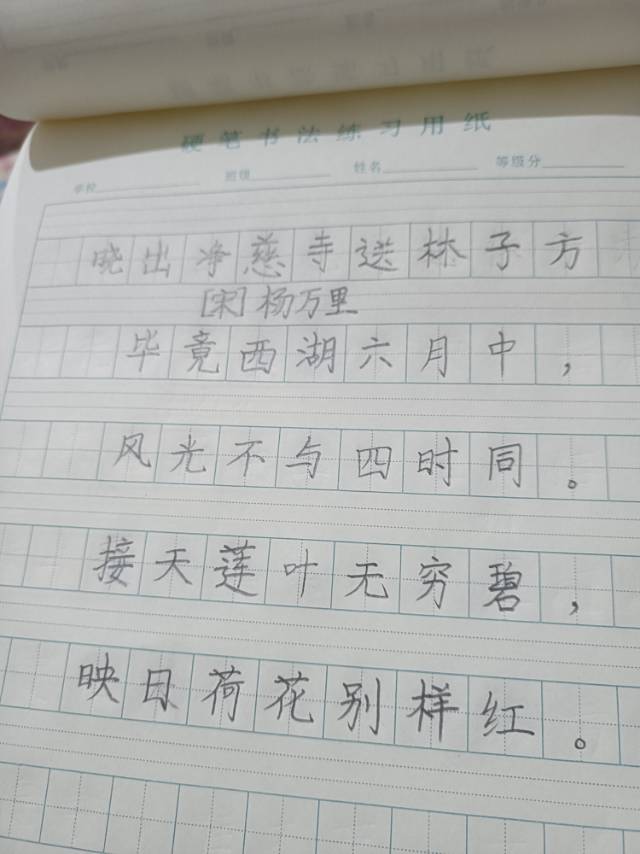 硬笔书法练习用纸
学校 班级 姓名 等级分
晓出净慈寺送林子方
[宋]杨万里
毕竟西湖六月中，
风光不与四时同。
接天莲叶无穷碧，
映日荷花别样红。